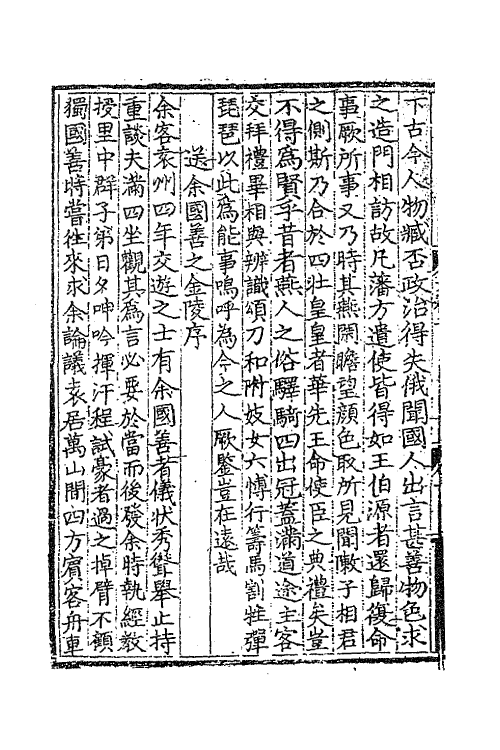 下古今人物臧否政治得失俄聞國人出言甚善物色求
之造門相訪故凡藩方遣使皆得如王伯源者還歸復命
事厥所事又乃時其燕閑瞻望顔色取所見聞敶子相君
之側斯乃合於四壯皇皇者華先王命使臣之典禮矣豈
不得爲賢乎昔者燕人之俗驛騎四出冠蓋滿道途主客
交拜禮畢相與辨識頌刀和附妓女六博行籌馬割牲彈
琵琶以此爲能事嗚呼為今之人厥鑒豈在遠哉
送余國善之金陵序
余客袁州四年交遊之士有余國善者儀状秀聳舉止持
重談夫滿四坐觀其爲言必要於當而後發余時執經教
授里中群子弟日夕呻吟揮汗程試豪者過之掉臂不顧
獨國善時嘗往來求余論議袁居萬山間四方賓客舟車